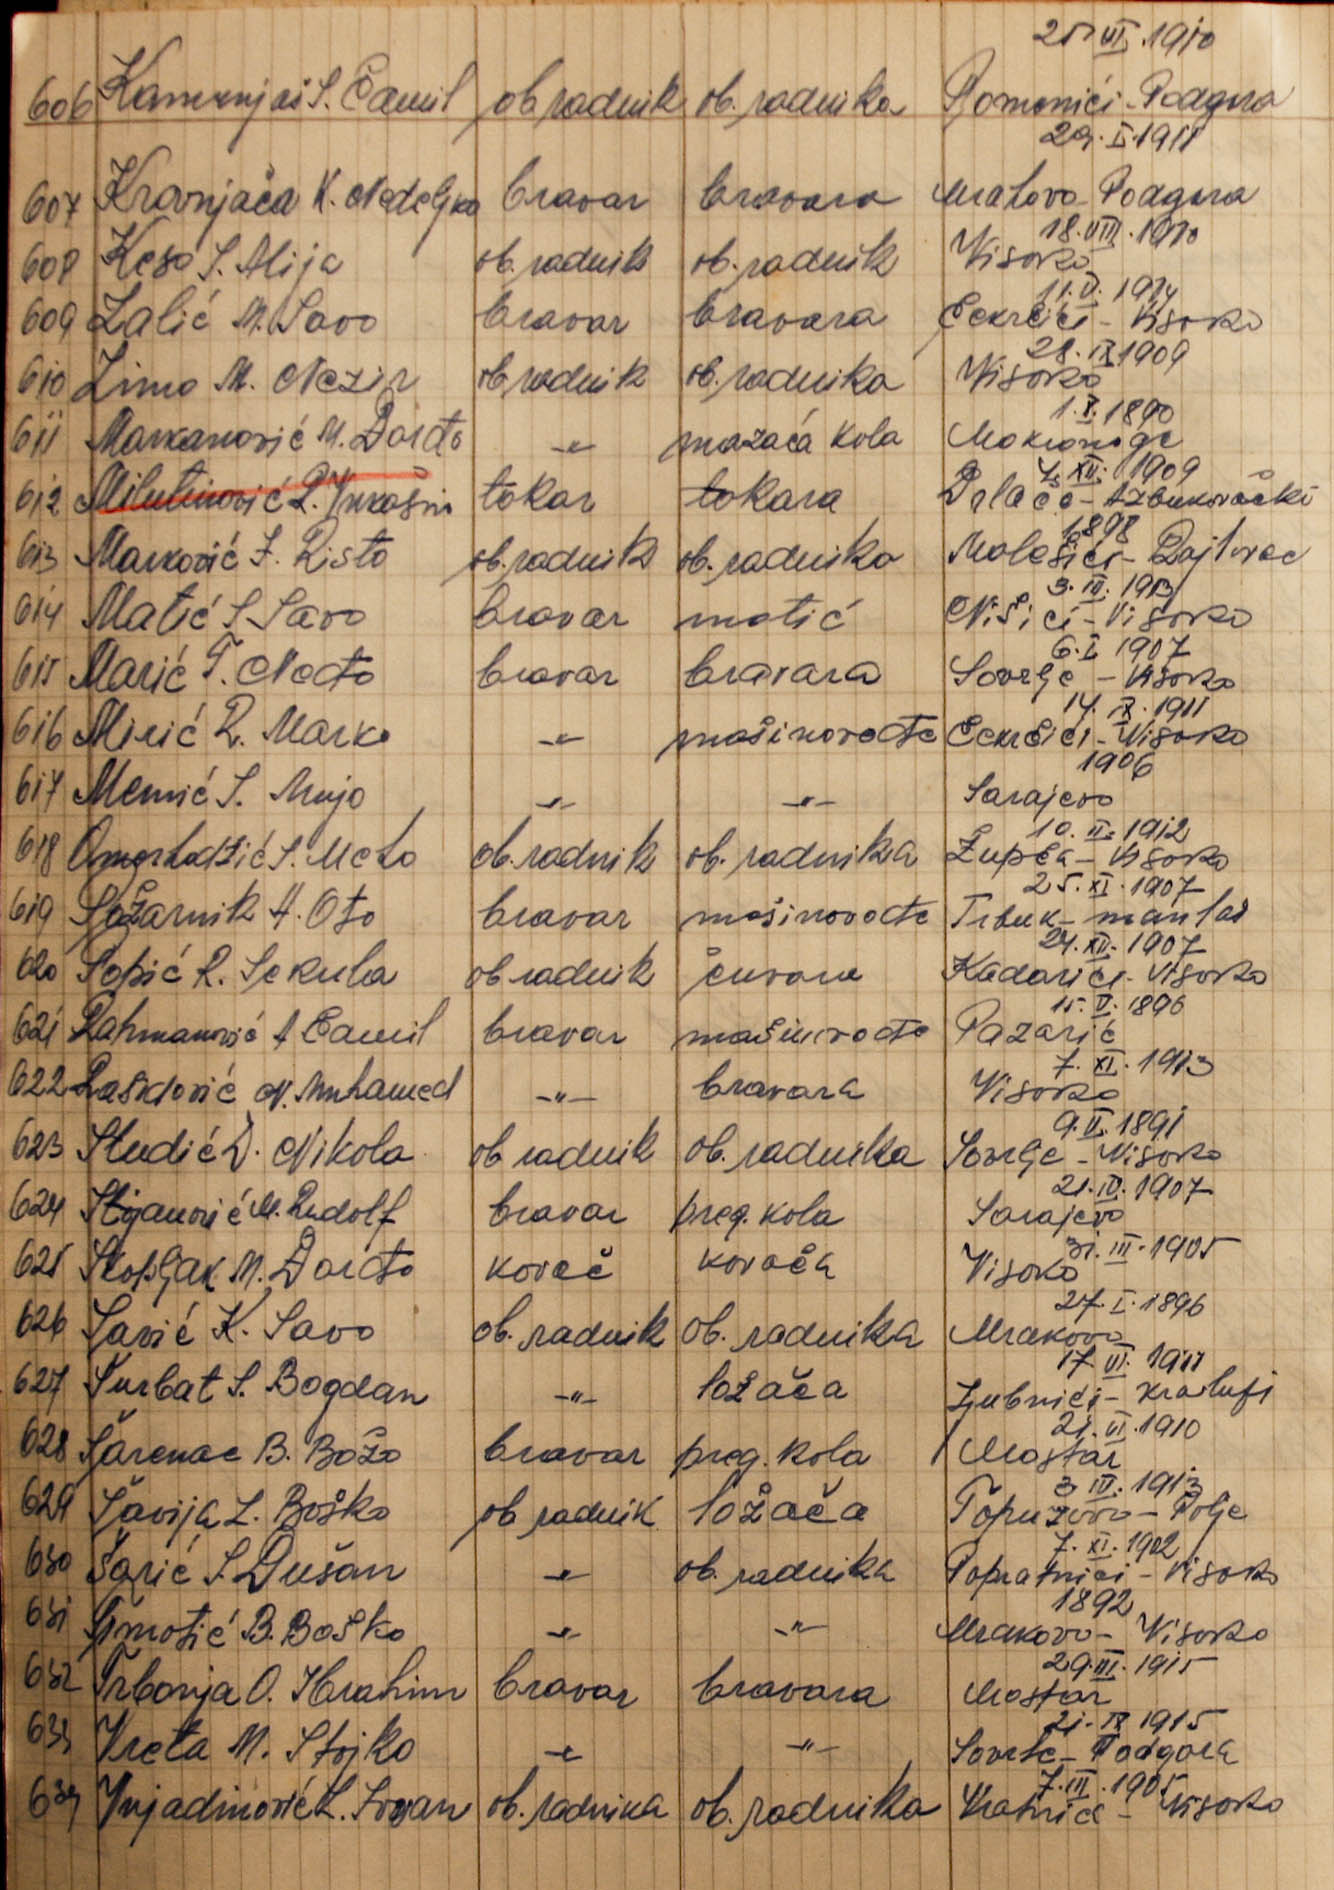 25. VI. 1910
606 Kamenjaš S. Ćamil ob radnik ob. radnika Romenići - Podgora
29. I. 1911
607 Kravnjača K. Nedeljko bravar bravara Mratovo - Podgora
18. VIII. 1910
608 Keso S. Alija ob. radnik ob. radnik Visoko
11. V. 1914
609 Lalić M. Savo bravar bravara Čekrčići - Visoko
28. IX 1909
610 Limo M. Nezir ob radnik ob. radnika Visoko
1. X. 1890
611 Markanović M. Đorđo -"- mazača kola Mokronoge
7. XII. 1909
612 Milutinović R. Vukašin tokar tokara Drlače - Azbukovački
1898
613 Marković J. Risto ob. radnik ob. radnika Malešići - Rajlovac
3. III. 1913
614 Matić S. Savo bravar matić Nišići - Visoko
6. I. 1907
615 Marić T. Neđo bravar bravara Sovrlje - Visoko
14. IX. 1911
616 Mirić R. Marko -"- mašinovođe Čekrčići - Visoko
1906
617 Memić S. Mujo -"- -"- Sarajevo
10. II. 1912
618 Omerhodžić S. Meho ob. radnik ob. radnika Župča - Visoko
25. XI. 1907
619 Požarnik A. Oto bravar mašinovođe Trbuk - maglaj
24. XII. 1907
620 Popić R. Sekula ob radnik čuvara Kadarići - Visoko
15. V. 1896
621 Rahmanović A Ćamil bravar mašinovođe Pazarić
7. XI. 1913
622 Rašidović N. Muhamed -"- bravara Visoko
9. II. 1891
623 Studić D. Nikola ob radnik ob. radnika Sovrlje - Visoko
21. IV. 1907
624 Stojanović M. Rudolf bravar preg. kola Sarajevo
31. III. 1905
625 Skopljak M. Đorđo kovač kovača Visoko
27. I. 1896
626 Savić K. Savo ob. radnik ob. radnika Mrakovo
17. VI. 1911
627 Šurbat S. Bogdan -"- ložača Ljubnići - Kralupi
21. VI. 1910
628 Šarenac B. Božo bravar preg. kola Mostar
3 IV. 1913
629 Šavija L. Boško ob radnik ložača Topuzovo - Polje
7. XI. 1902
630 Šarić S. Dušan -"- ob. radnika Popratnići - Visoko
1892
631 Timotić B. Boško -"- -"- Mrakovo - Visoko
29. III. 1915
632 Trbonja O. Ibrahim bravar bravara Mostar
21. IX 1915
633 Vreta M. Stojko -"- -"- Sovrle - Podgora
7. III. 1905
634 Vujadinović L. Jovan ob. radnika ob. radnika Vratnica - Visoko